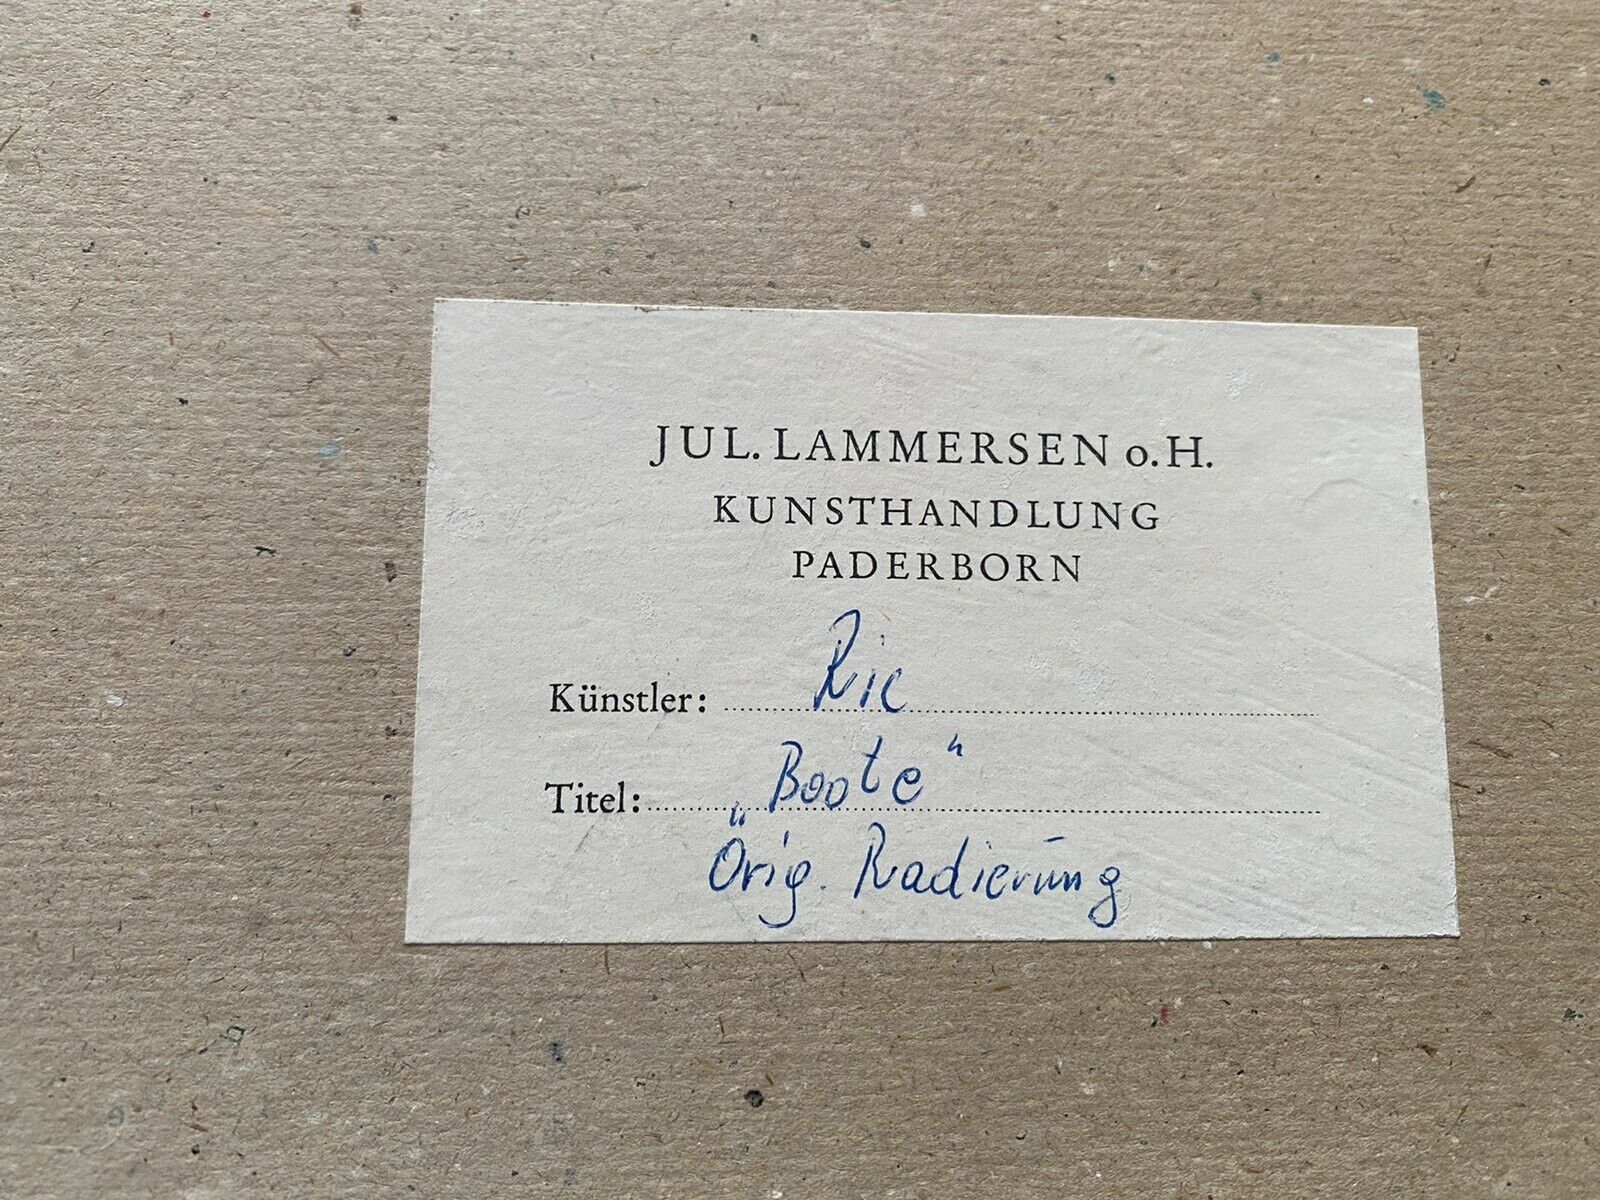 JUL. LAMMERSEN o. H.
KUNSTHANDLUNG
PADERBORN
Künstler: Ric
Titel: „Boote“
Orig. Radierung